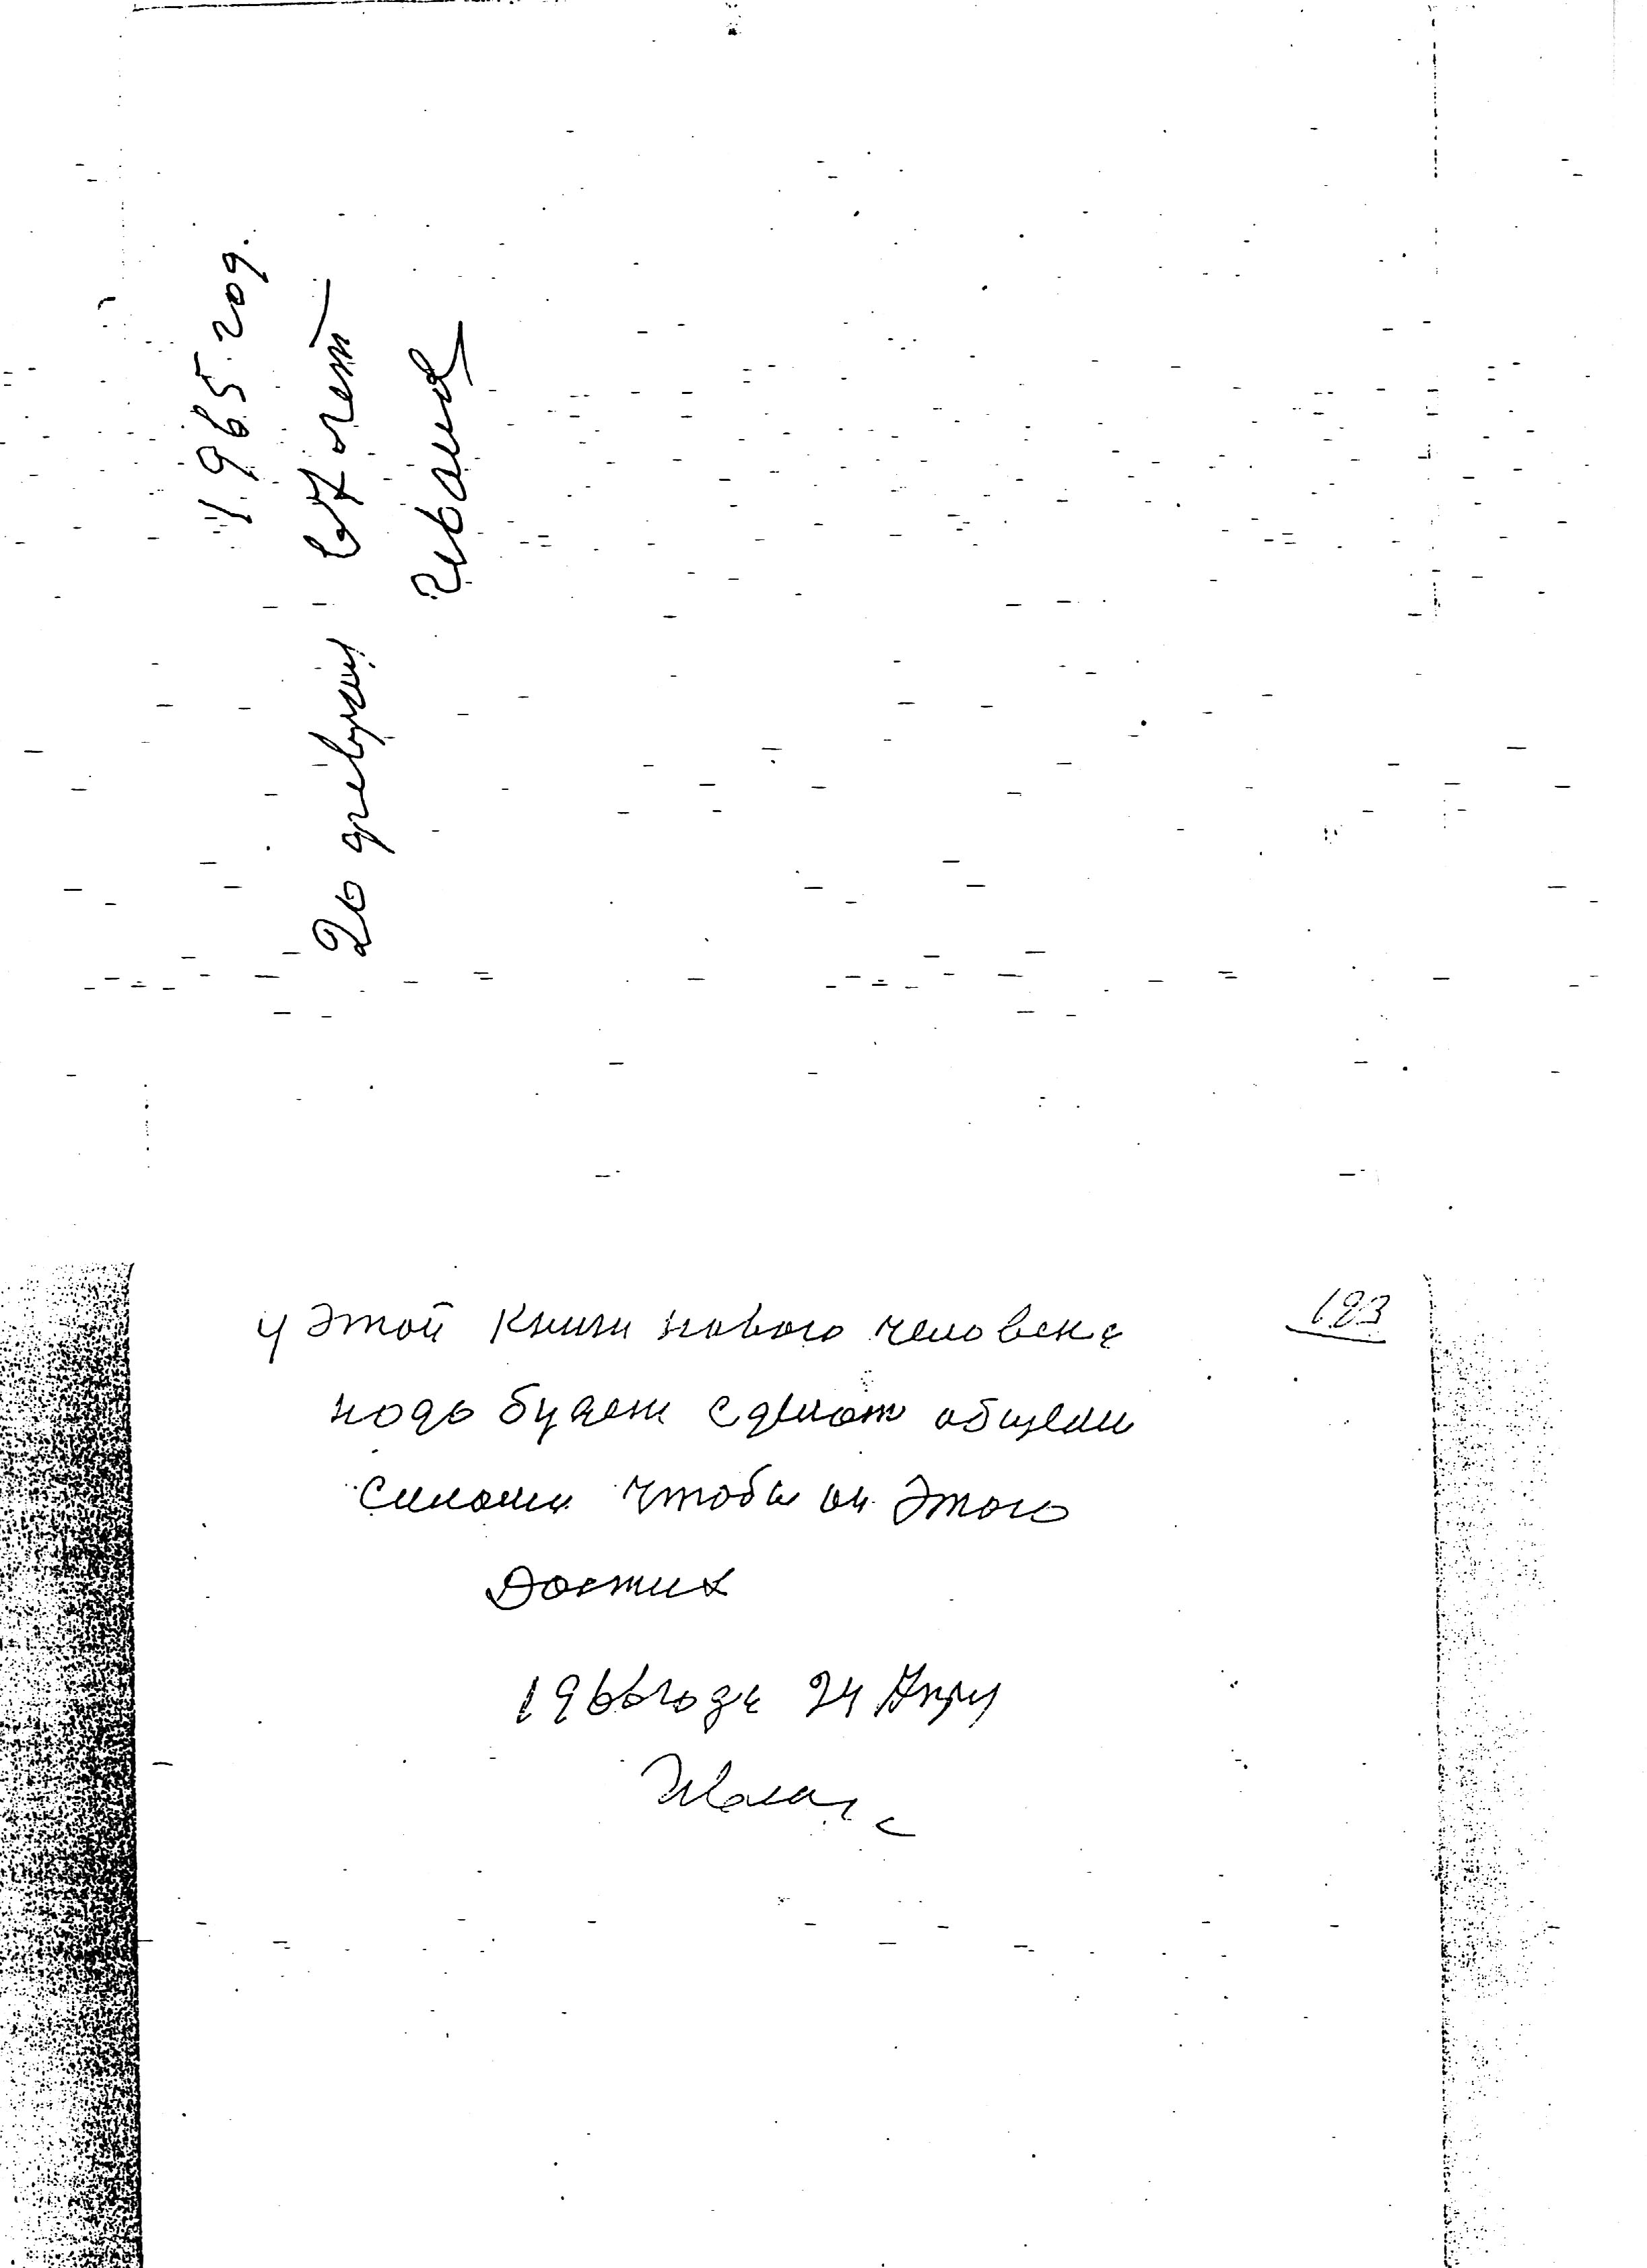 1965. год.
20 февраля 67 лет
Иванов
у этой книги нового человека
надо будет сделат общеми
силами чтобы он этого
Достиг
1966 года 24 Апр
Иванов
123